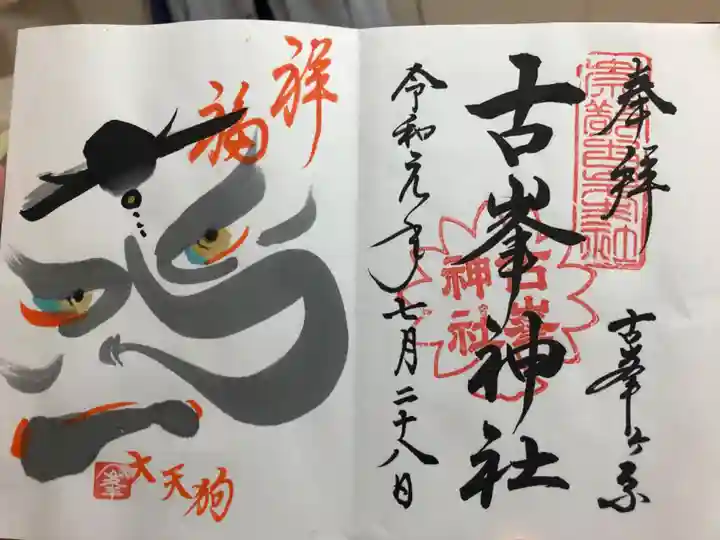 奉拝
古峯ヶ原
古峯神社
古峯神社
令和元年七月二十八日
祥福
大天狗
峯